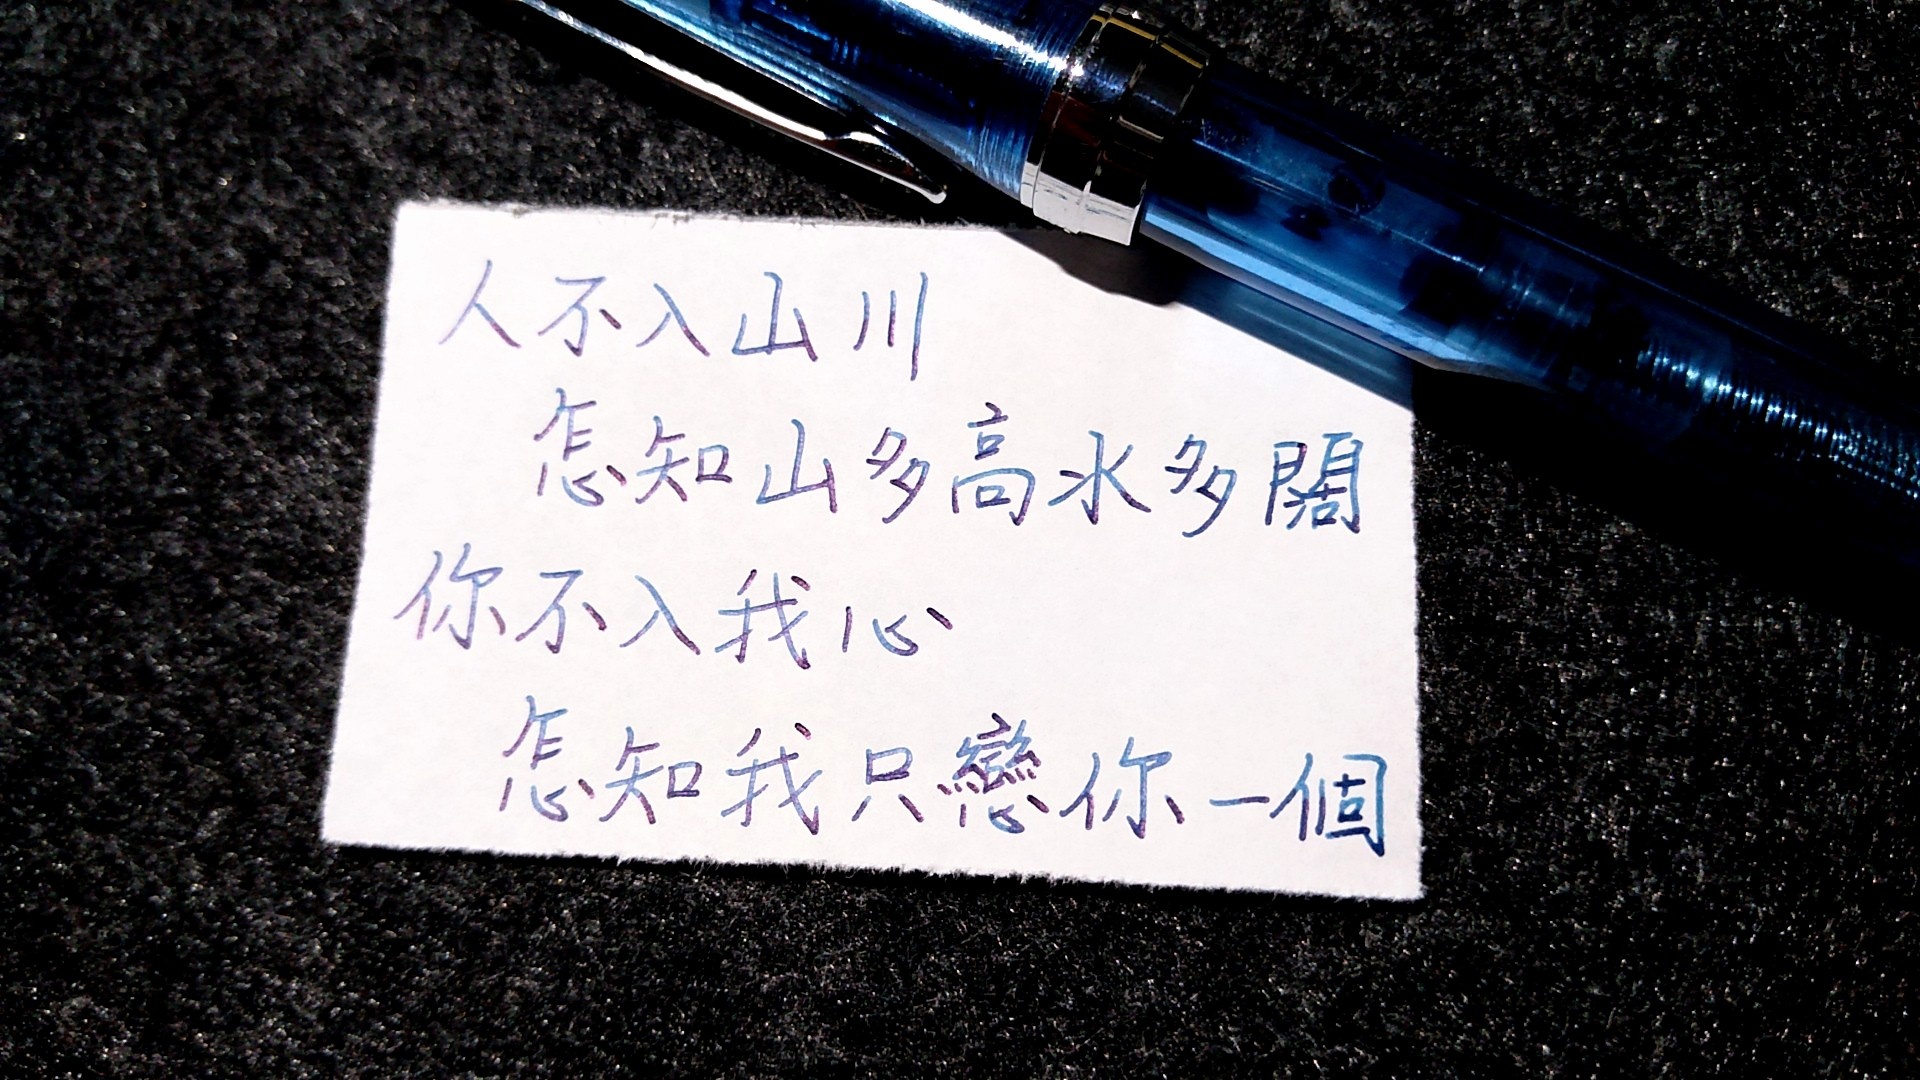 人不入山川
怎知山多高水多闊
你不入我心
怎知我只戀你一個